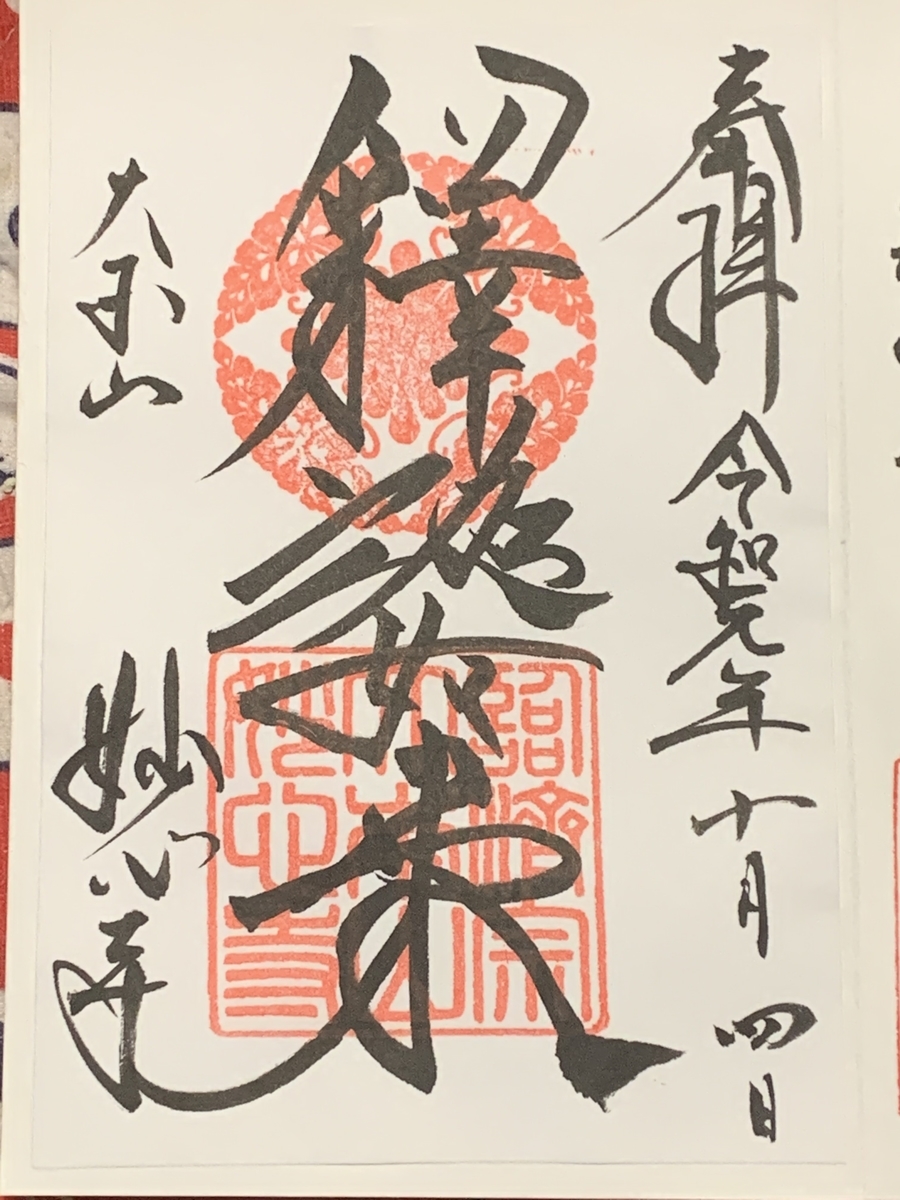 奉拝 令和元年 十月 四日
釋迦如来
大本山 妙心寺
臨濟宗
大本山
妙心寺